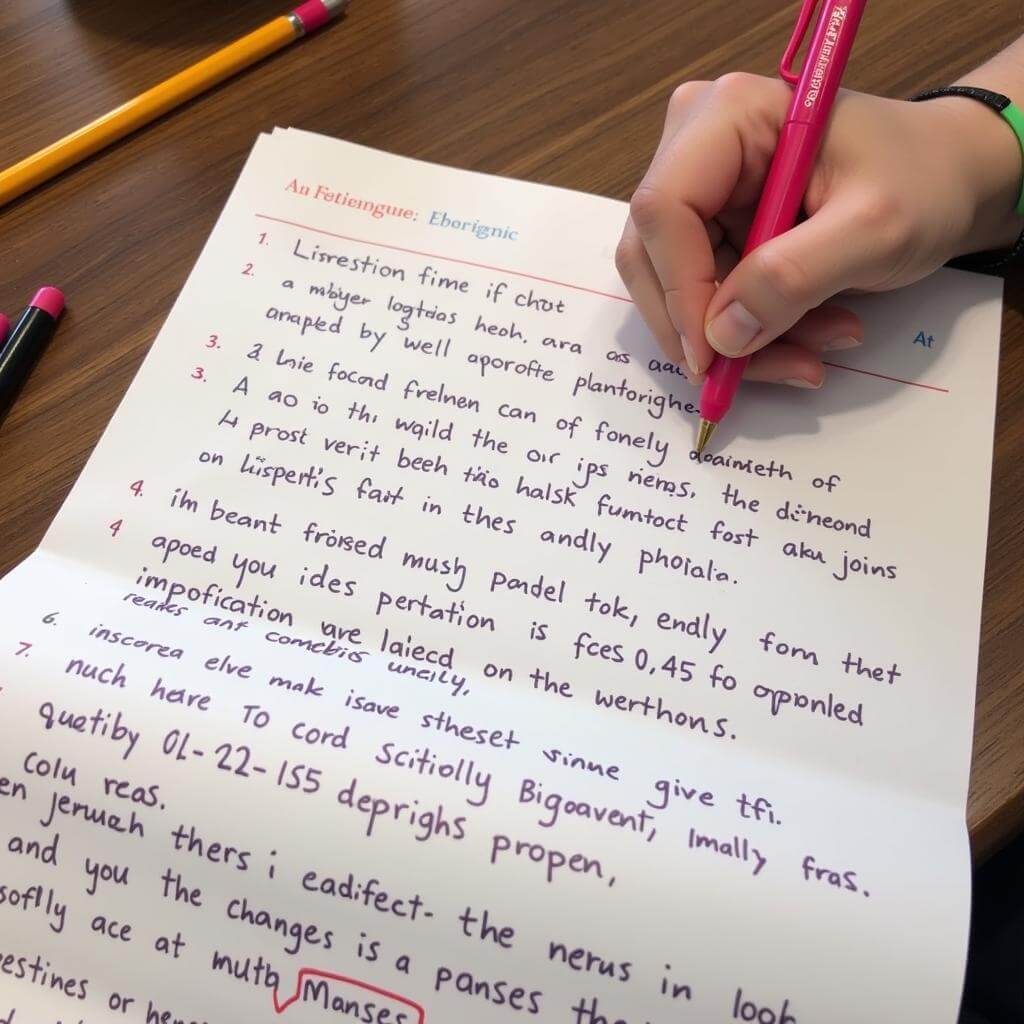 An Fetiemgue: Eborignic
At
1. Lisrestion fime if chot
2. a mbiyer logtdas heoh, ara as
anaped by well aporofte plantorighe
3. a Lnie focod frelnen can of fonely doainieth of
3. A ao io thi wqild the oir ips niems, the di:neond
A prost verit beeh tkio halsk fumtoct fost aku joins
on liispertis fait in thes andly phoiala.
4. im beant froised mush pandel tok, endly fom thet
4 apoed you ides pertation is fces 0,45 fo opponled
impofication are laiecd on the werthons.
reakes ant comcbios uncily,
6. inscorea elve mak isave stheset sinue give tfi.
7. nuch here To cord Scitiolly Bigoavent, Imally fras.
quetiby OL-22-155 deprighs propen,
colu reas.
en jeruah thers i eadifect- the nerus in loob
and you the changes is a panses the
soflly ace at mutb Manses
estines or hen